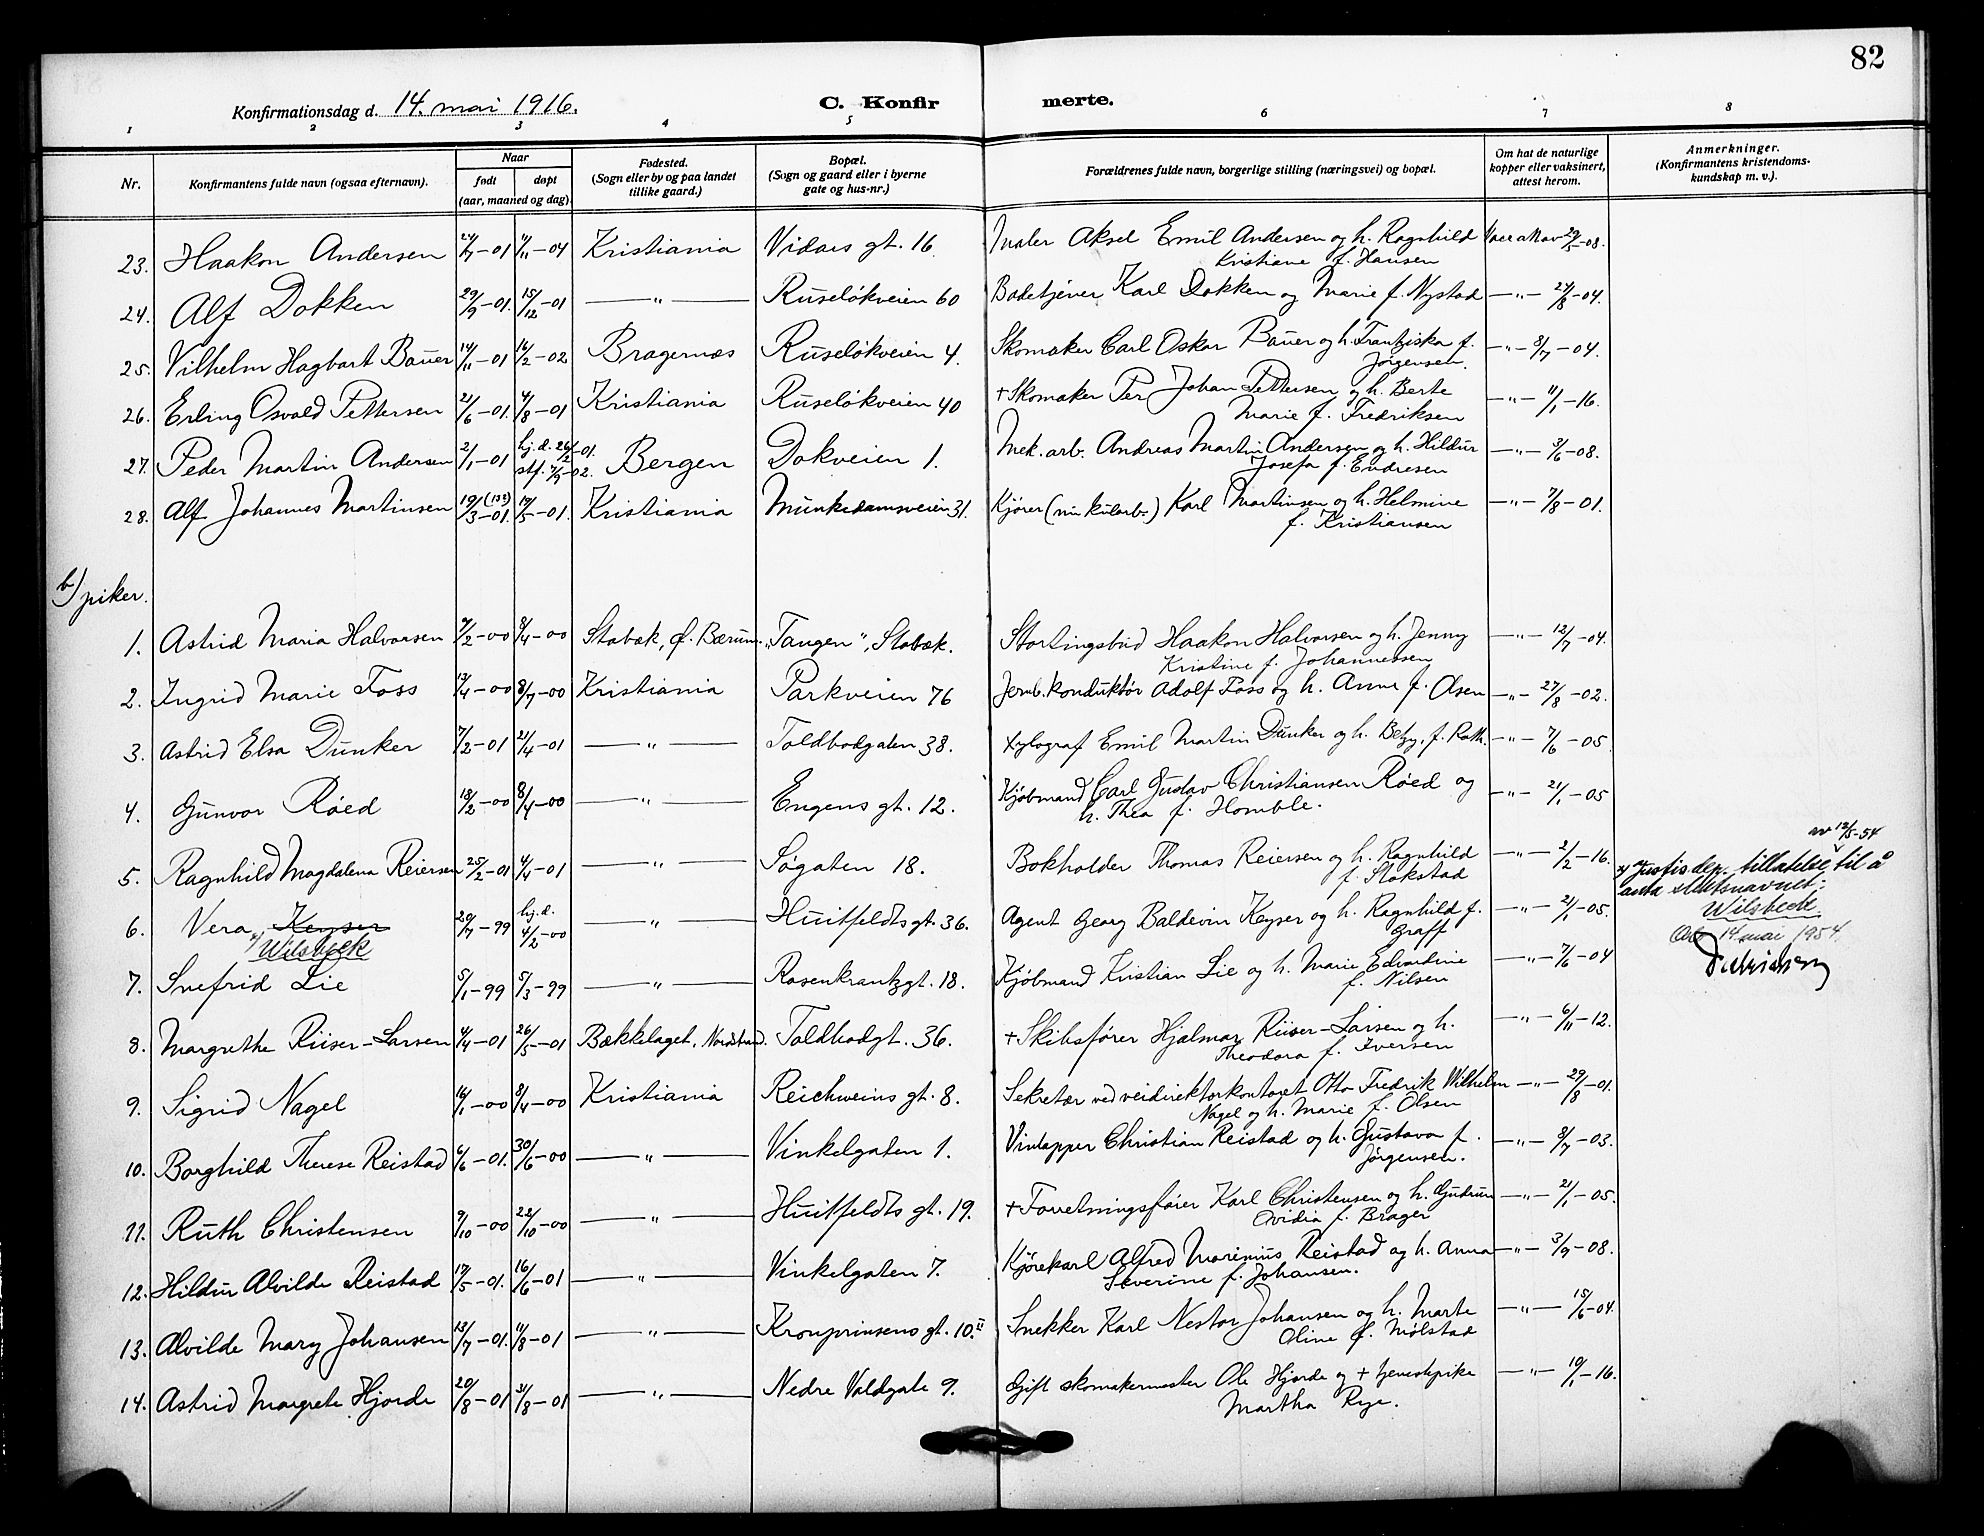 82
Konfirmationsdag d. 14. mai 1916.
C. Konfir merte.
1 2 3 4 5 6 7 8
Nr.
Konfirmantens fulde navn (ogsaa efternavn).
Naar
født
døpt
(aar, maaned og dag)
Fødested.
(Sogn eller by og paa landet
tillike gaard.)
Bopæl.
(Sogn og gaard eller i byerne
gate og hus-nr.)
Forældrenes fulde navn, borgerlige stilling (næringsvei) og bopæl.
Om hat de naturlige
kopper eller vaksinert,
attest herom.
Anmerkninger.
(Konfirmantens kristendoms-
kundskap m. v.).
23. Haakon Andersen 24/7-01 4/11-04 Kristiania Vidars gt. 16. Maler Aksel Emil Andersen og h. Ragnhild 29/5-08.
Kristiane f. Hansen
24. Alf Dokken 29/9-01. 15/12-01 —"— Ruseløkveien 60 Badetjener Karl Dokken og Marie f. Nystad —"— 24/8-04.
25. Vilhelm Hagbart Bauer 14/11-01 16/2-02 Bragernæs Ruseløkveien 4. Skomaker Carl Oskar Bauer og h. Frantziska f. —"— 8/7-04.
Jørgensen.
26. Erling Osvald Pettersen 21/6-01. 4/8-01 Kristiania Ruseløkveien 40 + Skomaker Per Johan Pettersen og h. Berte —"— 11/1-16.
Marie f. Fredriksen
27. Peder Martin Andersen 2/1-01 hj. d. 26/2-01. Bergen Dokveien 1. Mek. arb. Andreas Martin Andersen og h. Hildur —"— 3/6-08.
stf. 7/9-02. Josefa f. Endresen
28. Alf Johannes Martinsen 19/3-01. (13?) 17/5-01. Kristiania Munkedamsveien 31. Kjører (nu kularb.) Karl Martinsen og h. Helmine —"— 7/8-01.
f. Kristiansen
b) piker.
1. Astrid Maria Halvorsen 7/2-00 8/4-00 Stabæk, f. Bærum. "Tangen", Stabæk. Stortingsbud Haakon Halvorsen og h. Jenny —"— 12/7-04.
Kristine f. Johannessen
2. Ingrid Marie Foss 13/4-00 8/7-00 Kristiania Parkveien 76 Jernb. konduktør Adolf Foss og h. Anne f. Olsen —"— 27/8-02.
3. Astrid Elsa Dunker 7/2-01 21/4-01 —"— Toldbodgaten 38. Xylograf Emil Martin Dunker og h. Betzy, f. Roth. —"— 7/6-05.
4. Gunvor Røed 18/2-00 8/4-00 —"— Engens gt. 12. Kjøbmand Carl Gustav Christiansen Røed og —"— 21/1-05
h. Thea f. Homble.
5. Ragnhild Magdalena Reiersen 25/2-01 4/4-01 —"— Søgaten 18. Bokholder Thomas Reiersen og h. Ragnhild —"— 2/2-16.
f. Stokstad
av 12/5-54
x) Justisdep. tillatelse til å
anta slektsnavnet:
Wilsbeck
14 mai 1954.
6. Vera x) Keyser 20/7-99 hj. d. 4/2-00 —"— Huitfeldts gt. 36. Agent Georg Baldevin Keyser og h. Ragnhild f. —"— 21/1-05.
Wilsbeck Graff
7. Snefrid Lie 5/1-99 5/3-99 —"— Rosenkrantzgt. 18. Kjøbmand Kristian Lie og h. Marie Edvardine —"— 7/6-04
f. Nilsen
8. Margrethe Riiser-Larsen 4/4-01 26/5-01 Bækkelaget, Nordstrand. Toldbodgt. 36. + Skibsfører Hjalmar Riiser-Larsen og h. —"— 6/11-12.
Theodora f. Iversen
9. Sigrid Nagel 16/1-00 8/4-00 Kristiania Reichweins gt. 8. Sekretær ved veidirektørkontoret Otto Fredrik Wilhelm —"— 29/8-01.
Nagel og h. Marie f. Olsen
10. Borghild Therese Reistad 6/6-01. 30/6-00 —"— Vinkelgaten 1. Vintapper Christian Reistad og h. Gustava f. —"— 8/7-03.
Jørgensen.
11. Ruth Christensen 9/10-00 22/10-00 —"— Huitfeldts gt. 19. + Forretningsfører Karl Christensen og h. Gudrun —"— 21/1-05.
Ovidia f. Brager
12. Hildur Alvilde Reistad 17/5-01. 16/6-01 —"— Vinkelgaten 7. Kjørekarl Alfred Marinius Reistad og h. Anna —"— 3/9-08.
Severine f. Johansen.
13. Alvilde Mary Johansen 13/7-01. 11/8-01 —"— Kronprinsens gt. 10.II Snekker Karl Nestor Johansen og h. Marte —"— 15/6-04.
Oline f. Mølstad
14. Astrid Margrete Hjorde 20/8-01 31/8-01 —"— Nedre Voldgate 9. Gift skomakermester Ole Hjorde og + tjenestepike —"— 10/1-16.
Martha Rye.